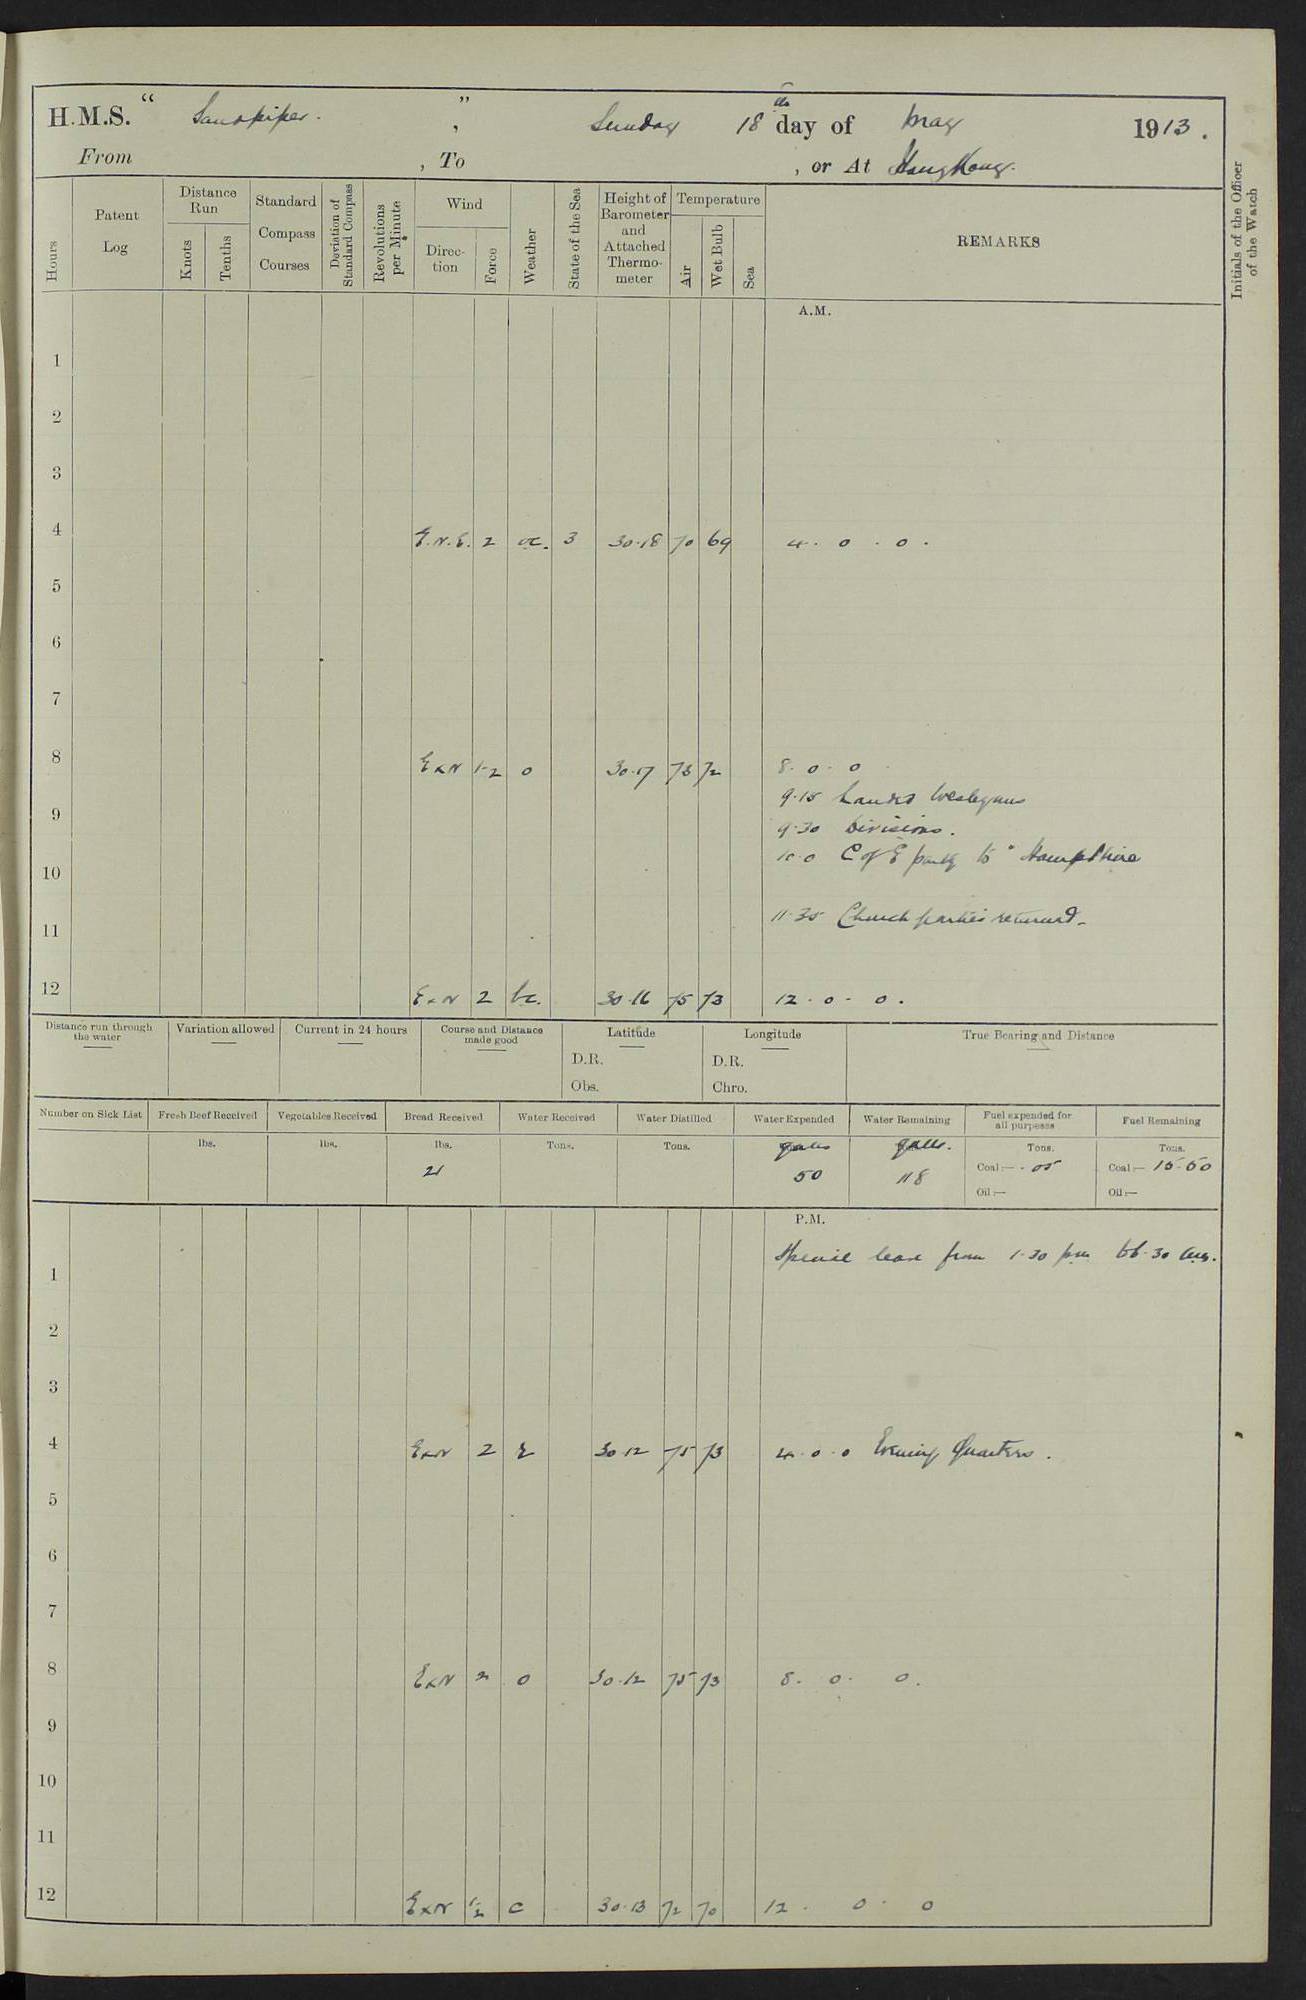 H.M.S. " Sandpiper. " , Sunday 18th day of May 1913.
From , To , or At Hong Kong.
Hours
Patent Log
Distance Run
Knots
Tenths
Standard Compass Courses
Deviation of Standard Compass
Revolutions per Minute
Wind
Direction
Force
Weather
State of the Sea
Height of Barometer and Attached Thermometer
Temperature
Air
Wet Bulb
Sea
REMARKS
Initials of the Officer of the Watch
A.M.
1
2
3
4 E.N.E. 2 oc. 3 30.18 70 69 4. 0. 0.
5
6
7
8 ExN 1-2 0 30.17 73 72 8. 0. 0
9.15 Landed Wesleyans
9
9.30 Divisions.
10.0 C of E party to "Hampshire
10
11.35 Church parties returned-
11
12 ExN 2 bc. 30.16 75 73 12. 0. 0.
Distance run through the water
Variation allowed
Current in 24 hours
Course and Distance made good
Latitude
D.R.
Obs.
Longitude
D.R.
Chro.
True Bearing and Distance
Number on Sick List
Fresh Beef Received
Vegetables Received
Bread Received
Water Received
Water Distilled
Water Expended
Water Remaining
Fuel expended for all purposes
Fuel Remaining
lbs. lbs. lbs. Tons. Tons. galls galls. Tons. Tons.
21 50 118 Coal:— .05 Coal:— 15.50
Oil:— Oil:—
P.M.
Special leave from 1.30 pm to 6.30 am.
1
2
3
4 ExN 2 r 30.12 75 73 4.0.0 Evening Quarters.
5
6
7
8 ExN 2 0 30.12 75 73 8. 0. 0.
9
10
11
12 ExN 1-2 c 30.13 72 70 12. 0. 0